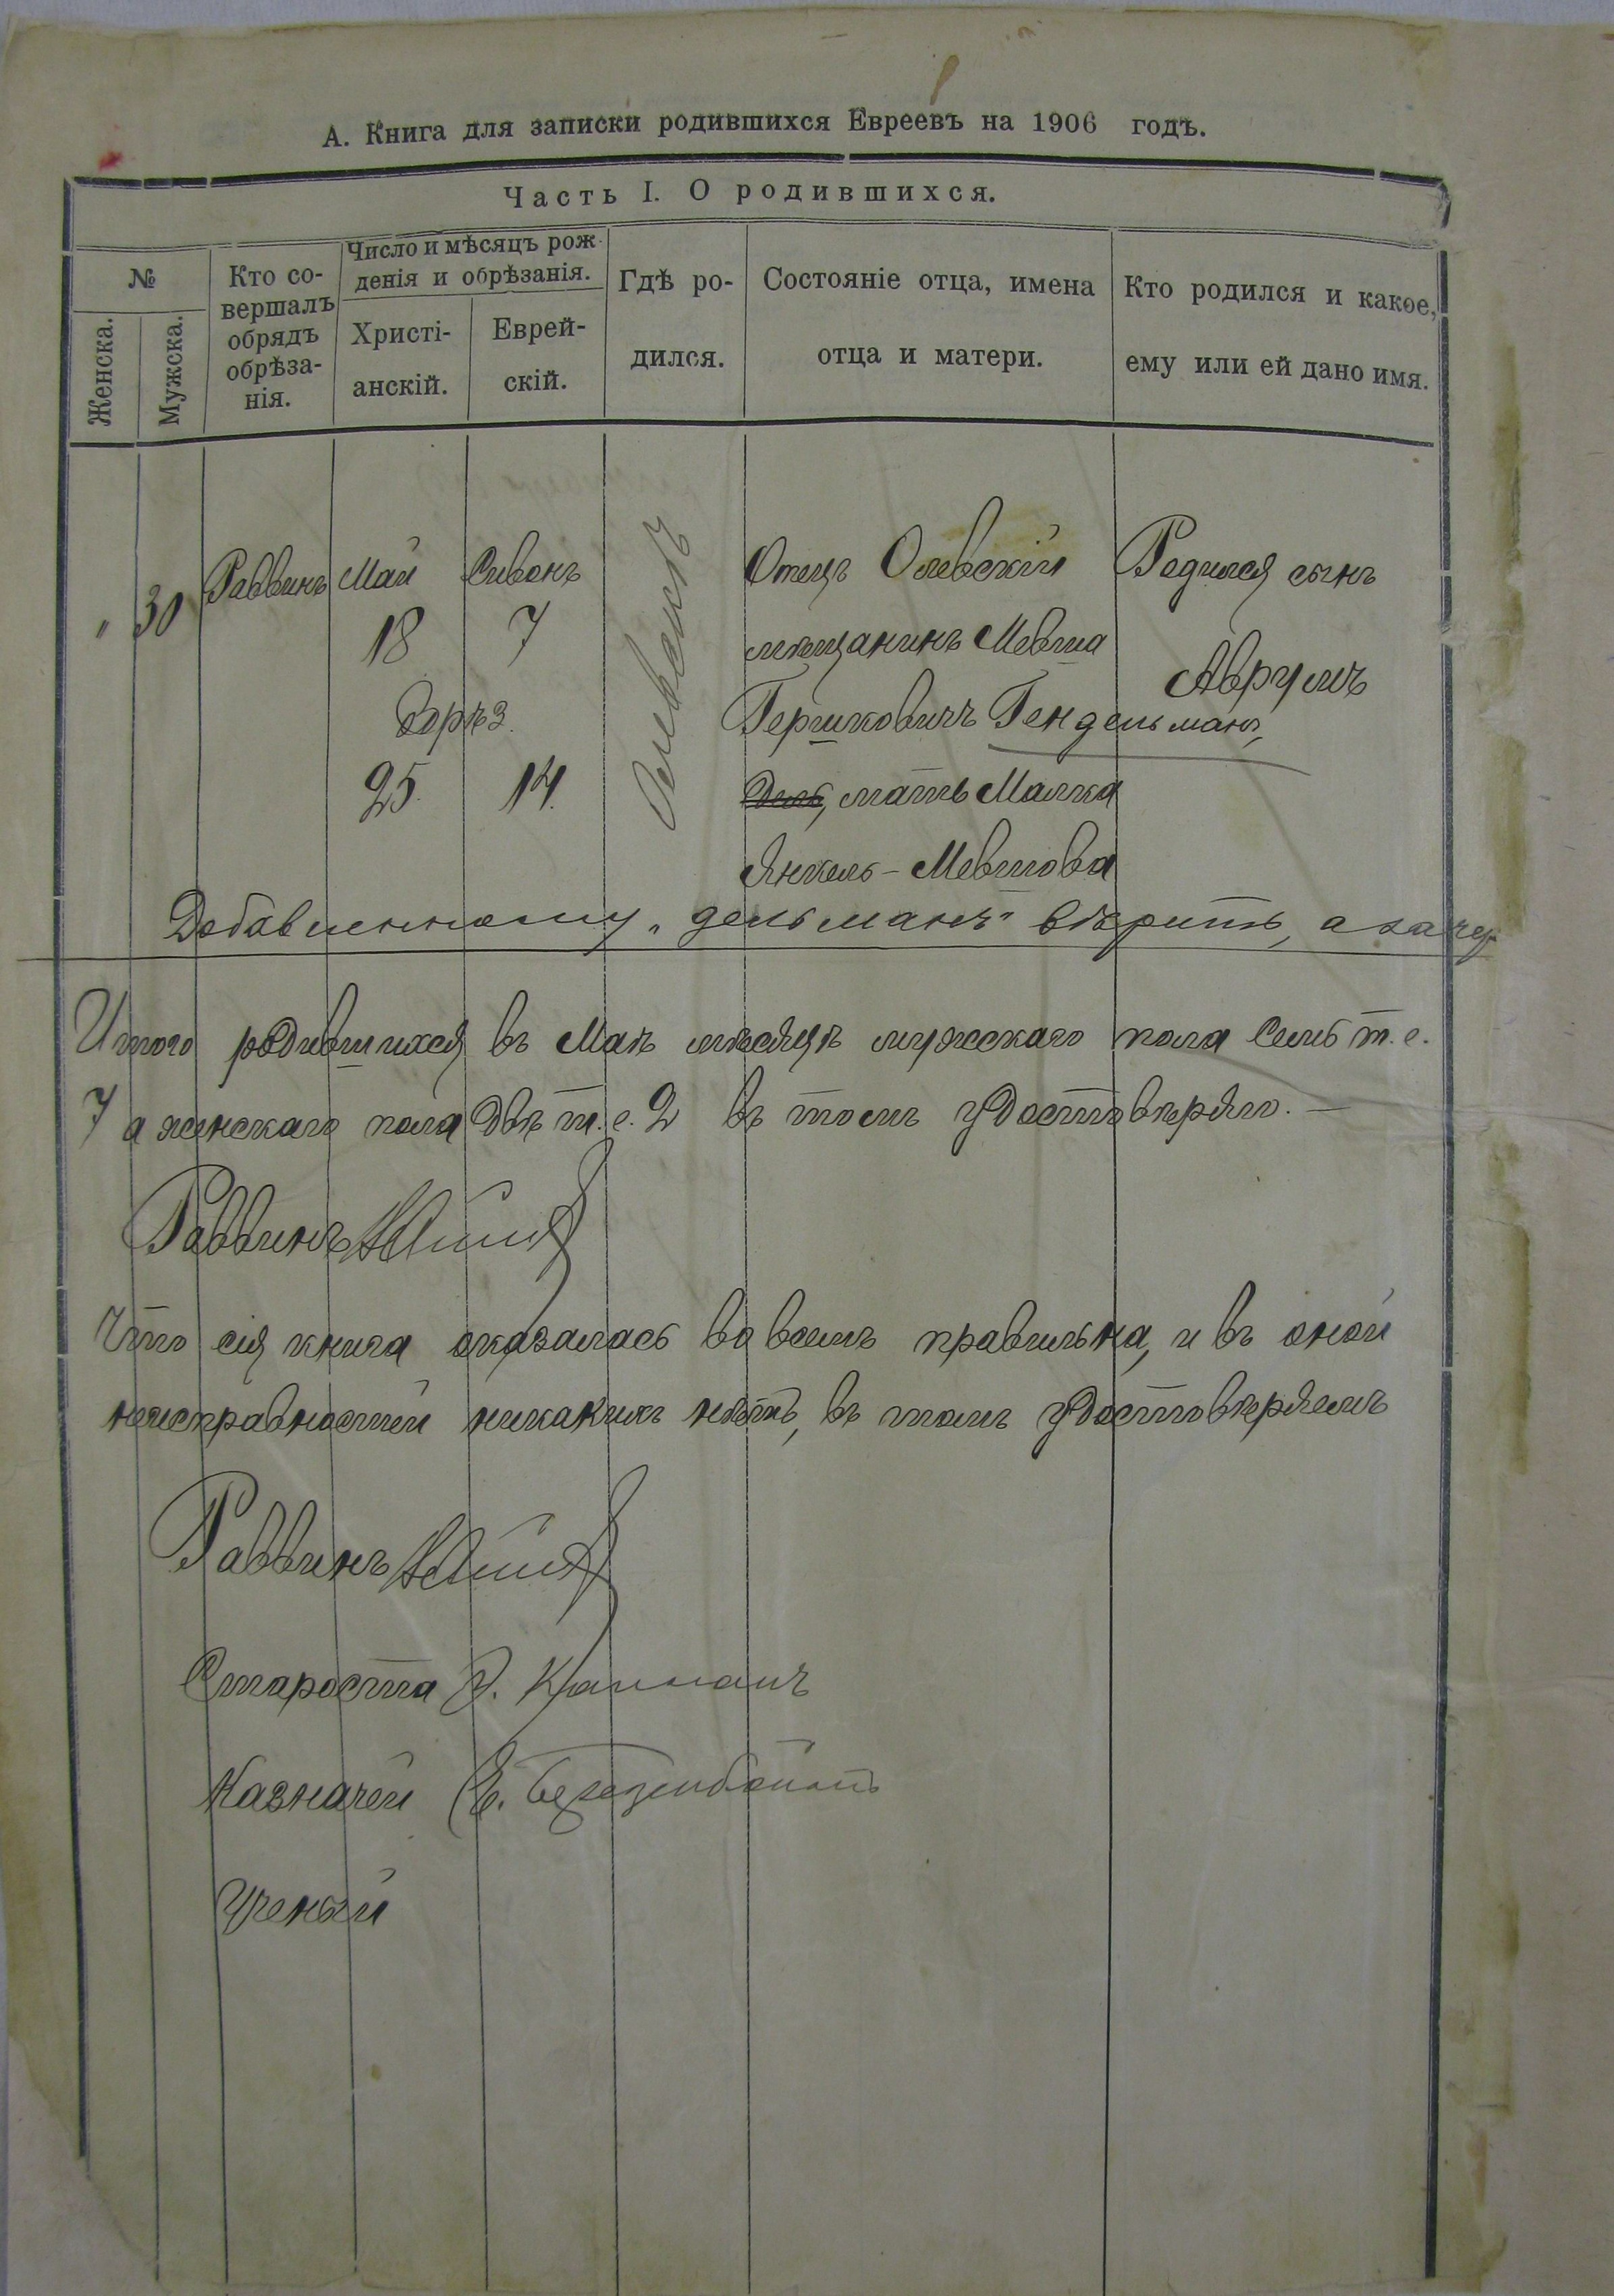 А. Книга для записки родившихся Евреевъ на 1906 годъ.
Часть I. О родившихся.
№
Женска.
Мужска.
Кто со-
вершалъ
обрядъ
обрѣза-
нія.
Число и мѣсяцъ рож-
денія и обрѣзанія.
Христі-
анскій.
Еврей-
скій.
Гдѣ ро-
дился.
Состояніе отца, имена
отца и матери.
Кто родился и какое,
ему или ей дано имя.
" 30 Раввинъ Май Сивонъ
18 7
Обрѣз.
25. 14.
Олевскъ
Отецъ Олевскій
мѣщанинъ Мевша
Гершковичъ Гендельманъ,
дель, мать Малка
Янкель-Мевшова
Родился сынъ
Аврумъ
Добавленному „дельманъ" вѣрить, а зачер
Итого родившихся въ Маѣ мѣсяцѣ мужскаго пола Семь т.е.
7 а женскаго пола Двѣ т.е. 2 въ томъ удостовѣряю.—
Раввинъ
Что сія книга оказалась во всемъ правильна, и въ оной
неисправностей никакихъ нѣтъ, въ томъ удостовѣряемъ
Раввинъ
Староста
Казначей
Ученый